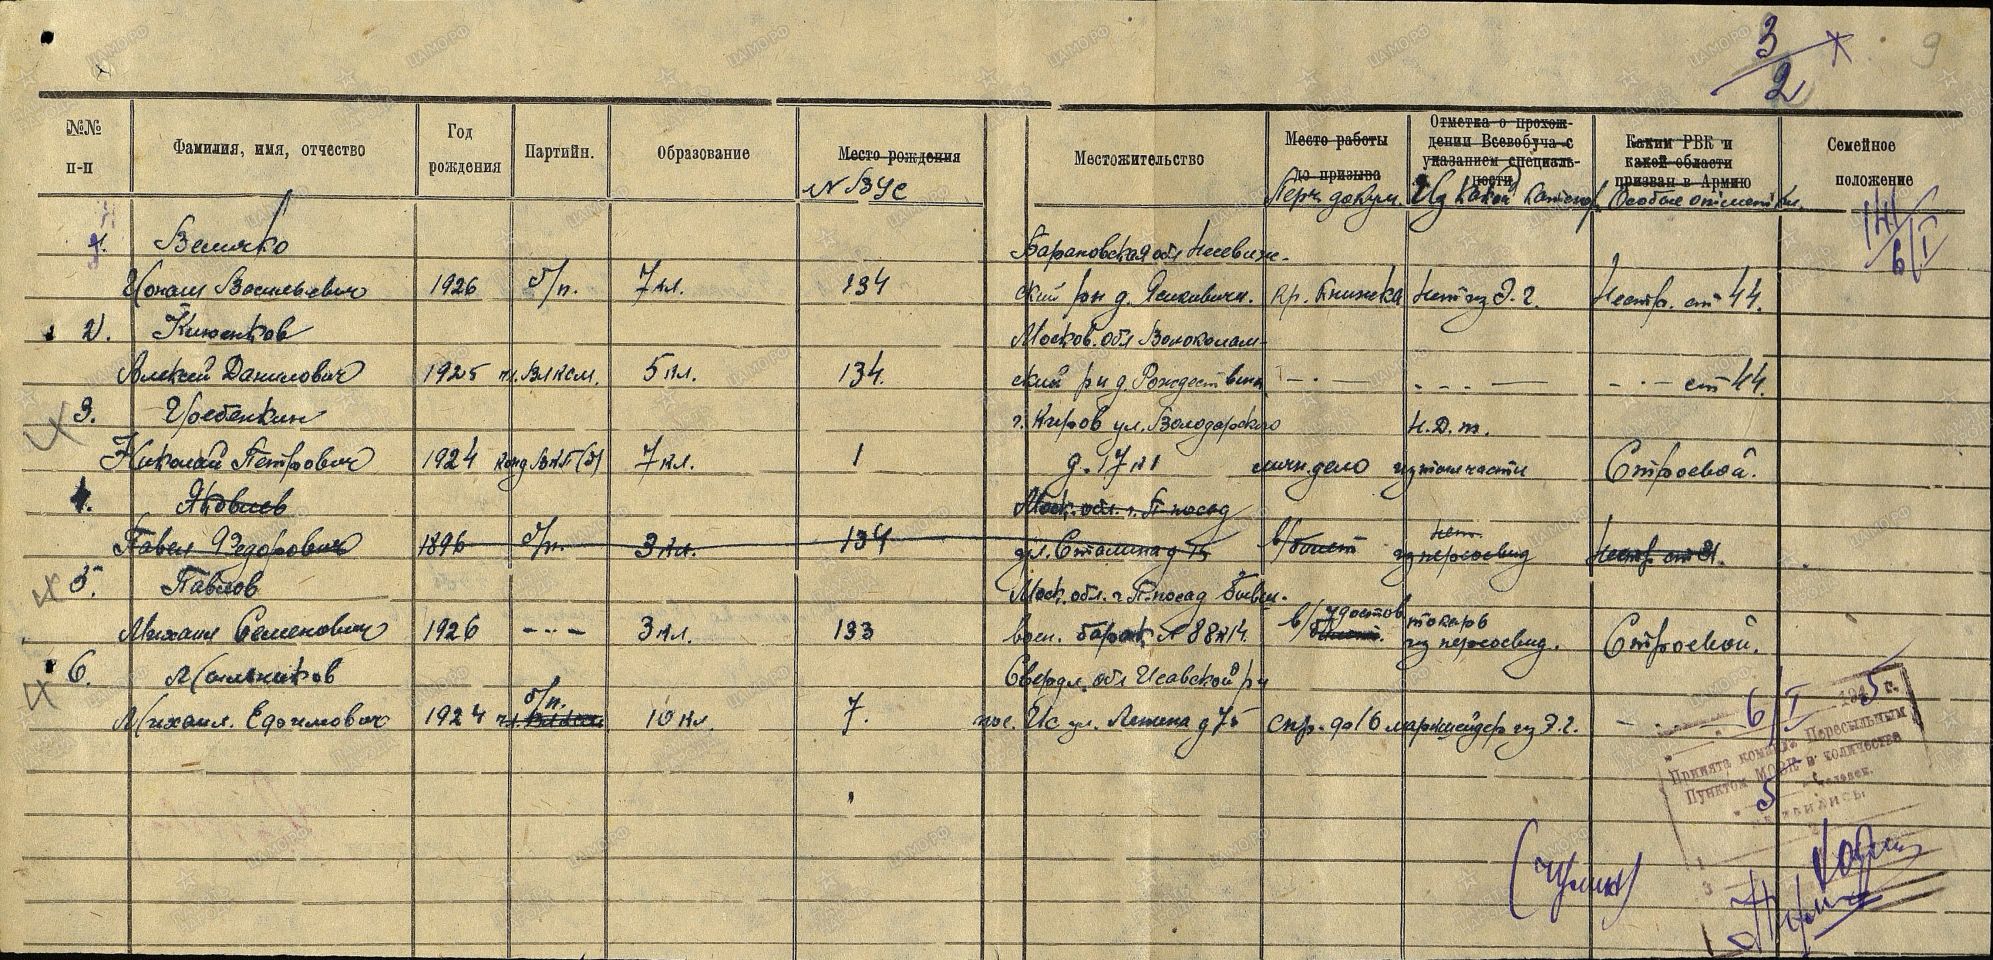 3/2 х 9
№№ п-п
Фамилия, имя, отчество
Год рождения
Партийн.
Образование
Место рождения
№ ВУС
Местожительство
Место работы до призыва
Перч. докум.
Отметка о прохождении Всевобуча с указанием специальности
Из какой катего
Каким РВК и какой области призван в Армию
Особые отметки.
Семейное положение
6/I
1. Велячко Барановская обл Несвиж-
Игнат Васильевич 1926 б/п. 7 кл. 134 ский рн д. кр. книжка Нет из Э.г. Нестр. ст 44.
2. Климентов Москов. обл Волоколам-
Алексей Данилович 1925 чл. ВЛКСМ. 5 кл. 134. ский рн д. Рождествино — . — - - - — — . — ст 44.
3. Гребенкин г. Киров ул. Володарского Н.Д.т.
Николай Петрович 1924 канд ВКП(б) 7 кл. 1 д. 17 к 1 личн. дело из том части Строевой.
4. Яковлев Моск. обл. г. П. посад
Павел Федорович 1896 б/п. 3 кл. 134 ул. Сталина д 15 в/билет нет из пересвид Нестр. ст
х 5. Павлов Моск. обл. г П. посад
Михаил Семенович 1926 - - - 3 кл. 133 барак № 88 к 14. в/удостов токарь из пересвид. Строевой.
6. Мыльников Свердл. обл Исавской рн
Михаил Ефимович 1924 б/п. чл. ВЛКСМ 10 кл 7. пос. Ис ул. Ленина д 75 спр. до 16 маркшейдер из Э.г. —
6/I 1945 г.
Принята команда Пересыльным
Пунктом МОВК в количестве
5 человек.